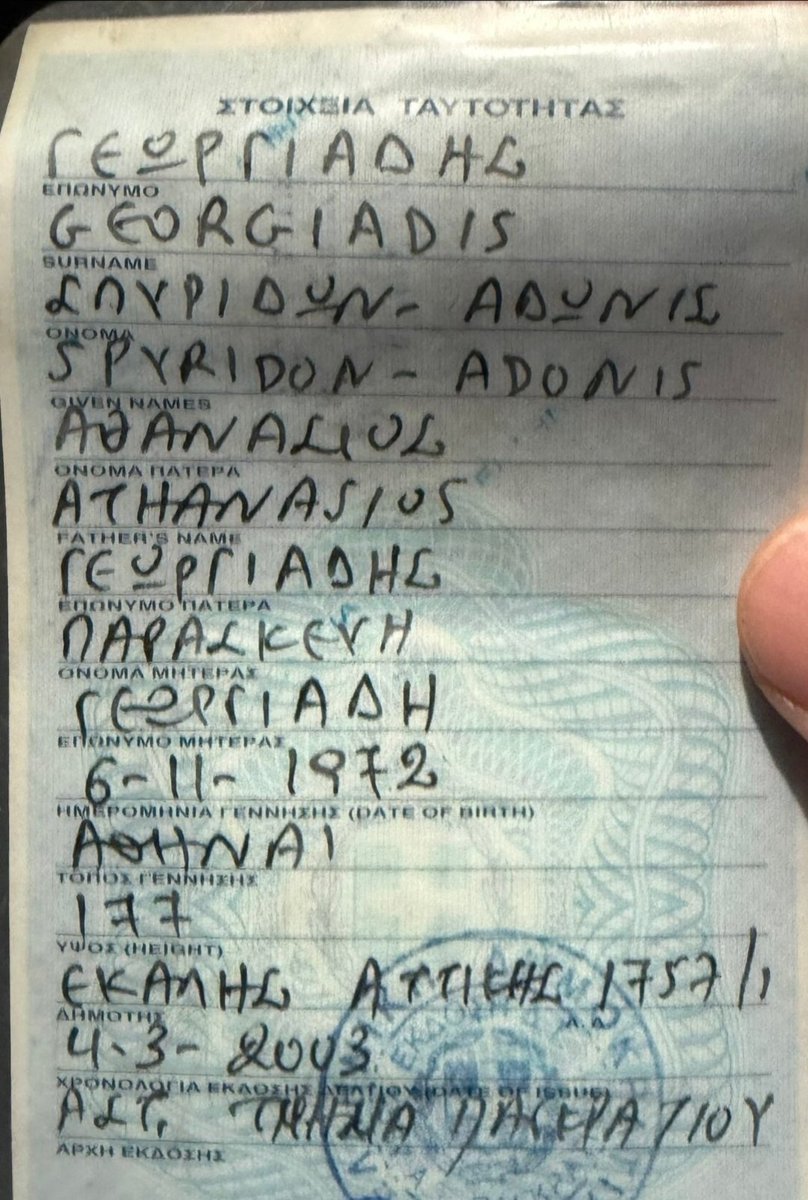 ΣΤΟΙΧΕΙΑ ΤΑΥΤΟΤΗΤΑΣ
ΓΕΩΡΓΙΑΔΗΣ
ΕΠΩΝΥΜΟ
GEORGIADIS
SURNAME
ΣΠΥΡΙΔΩΝ- ΑΔΩΝΙΣ
ΟΝΟΜΑ
SPYRIDON- ADONIS
GIVEN NAMES
ΑΘΑΝΑΣΙΟΣ
ΟΝΟΜΑ ΠΑΤΕΡΑ
ATHANASIOS
FATHER'S NAME
ΓΕΩΡΓΙΑΔΗΣ
ΕΠΩΝΥΜΟ ΠΑΤΕΡΑ
ΠΑΡΑΣΚΕΥΗ
ΟΝΟΜΑ ΜΗΤΕΡΑΣ
ΓΕΩΡΓΙΑΔΗ
ΕΠΩΝΥΜΟ ΜΗΤΕΡΑΣ
6-11- 1972
ΗΜΕΡΟΜΗΝΙΑ ΓΕΝΝΗΣΗΣ (DATE OF BIRTH)
ΑΘΗΝΑΙ
ΤΟΠΟΣ ΓΕΝΝΗΣΗΣ
177
ΥΨΟΣ (HEIGHT)
ΕΚΑΛΗΣ ΑΤΤΙΚΗΣ 1757/1
ΔΗΜΟΤΗΣ Α.Α
4-3-2003
ΧΡΟΝΟΛΟΓΙΑ ΕΚΔΟΣΗΣ ΔΠΑΓΙΟΥ (DATE OF ISSUE)
ΑΣΤ. ΤΜΗΜΑ ΠΑΓΚΡΑΤΙΟΥ
ΑΡΧΗ ΕΚΔΟΣΗΣ